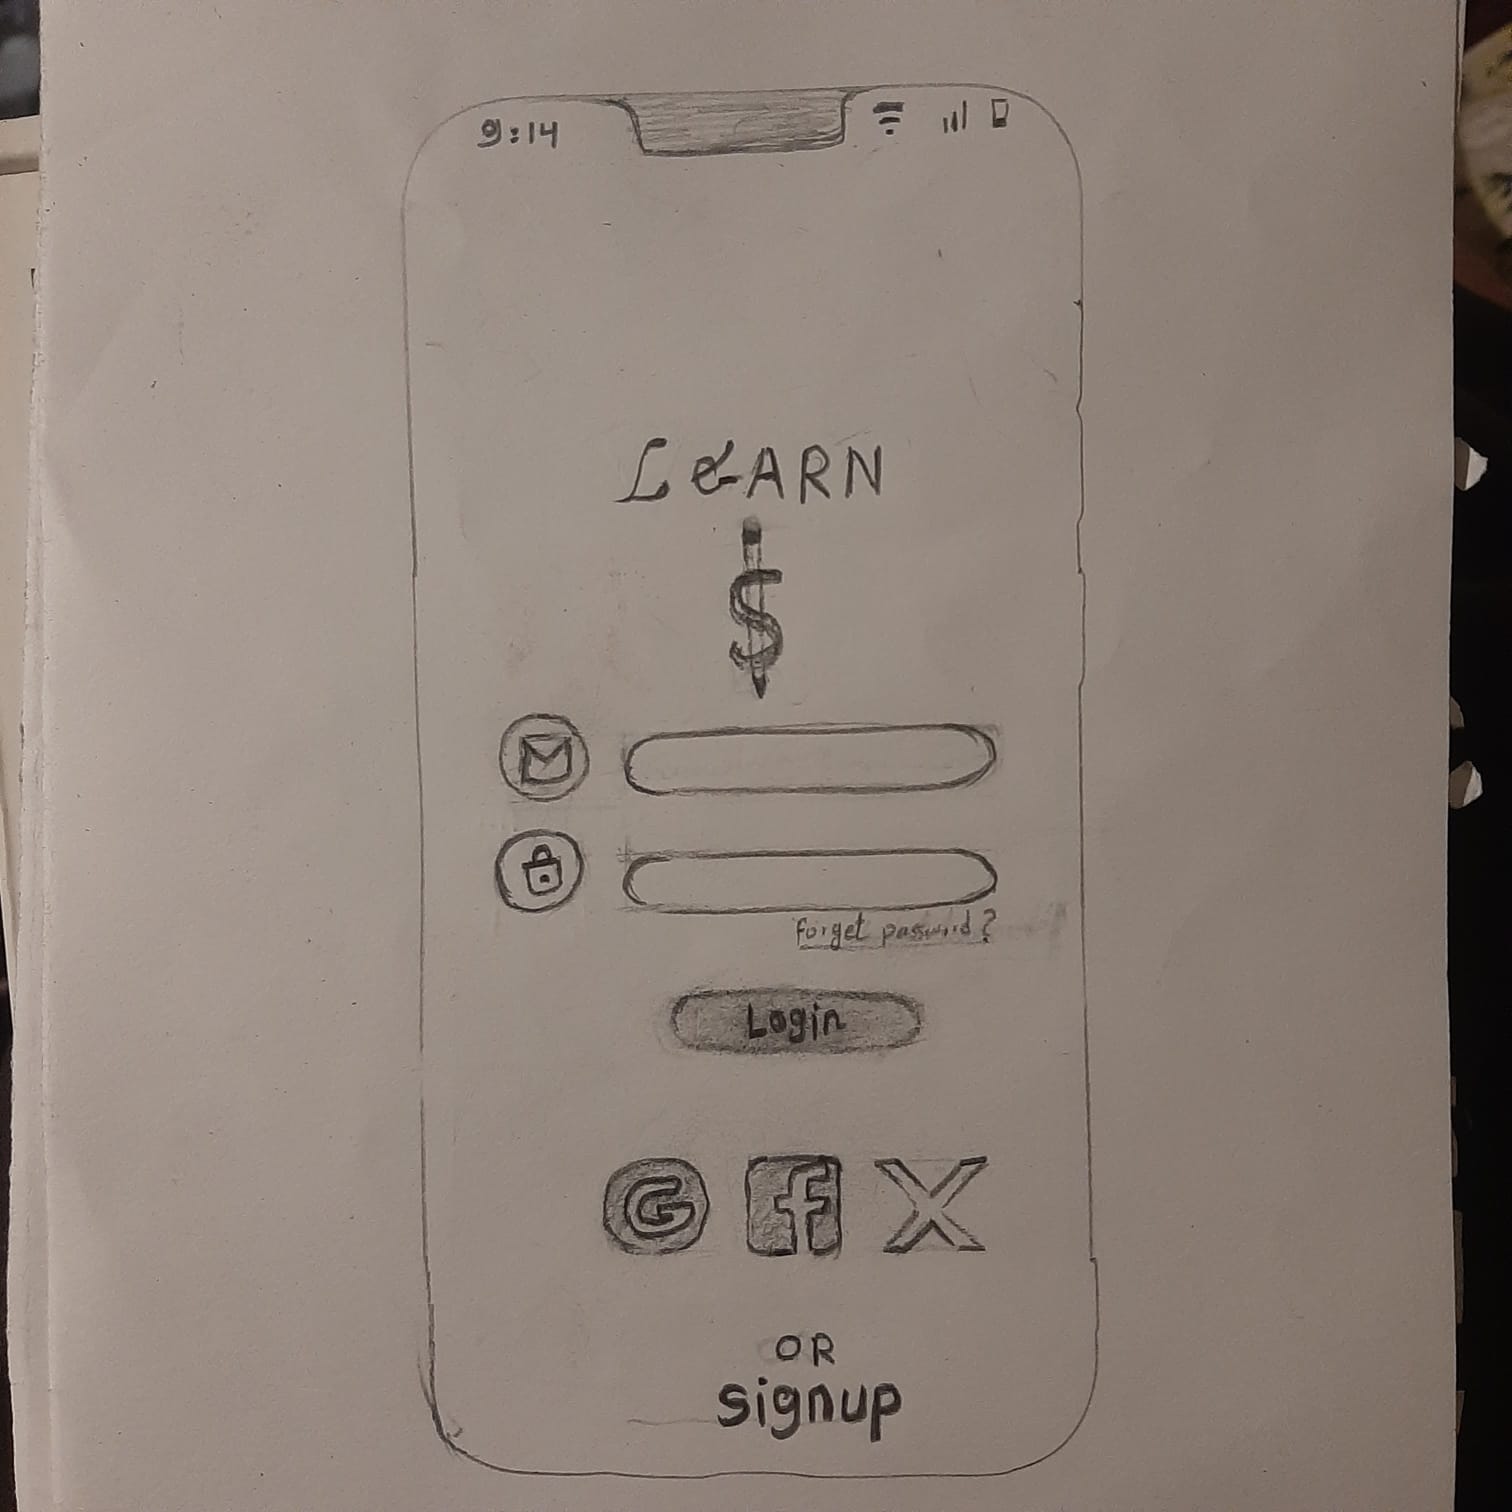 9:14
LEARN
$
forget password?
Login
G f X
OR
signup